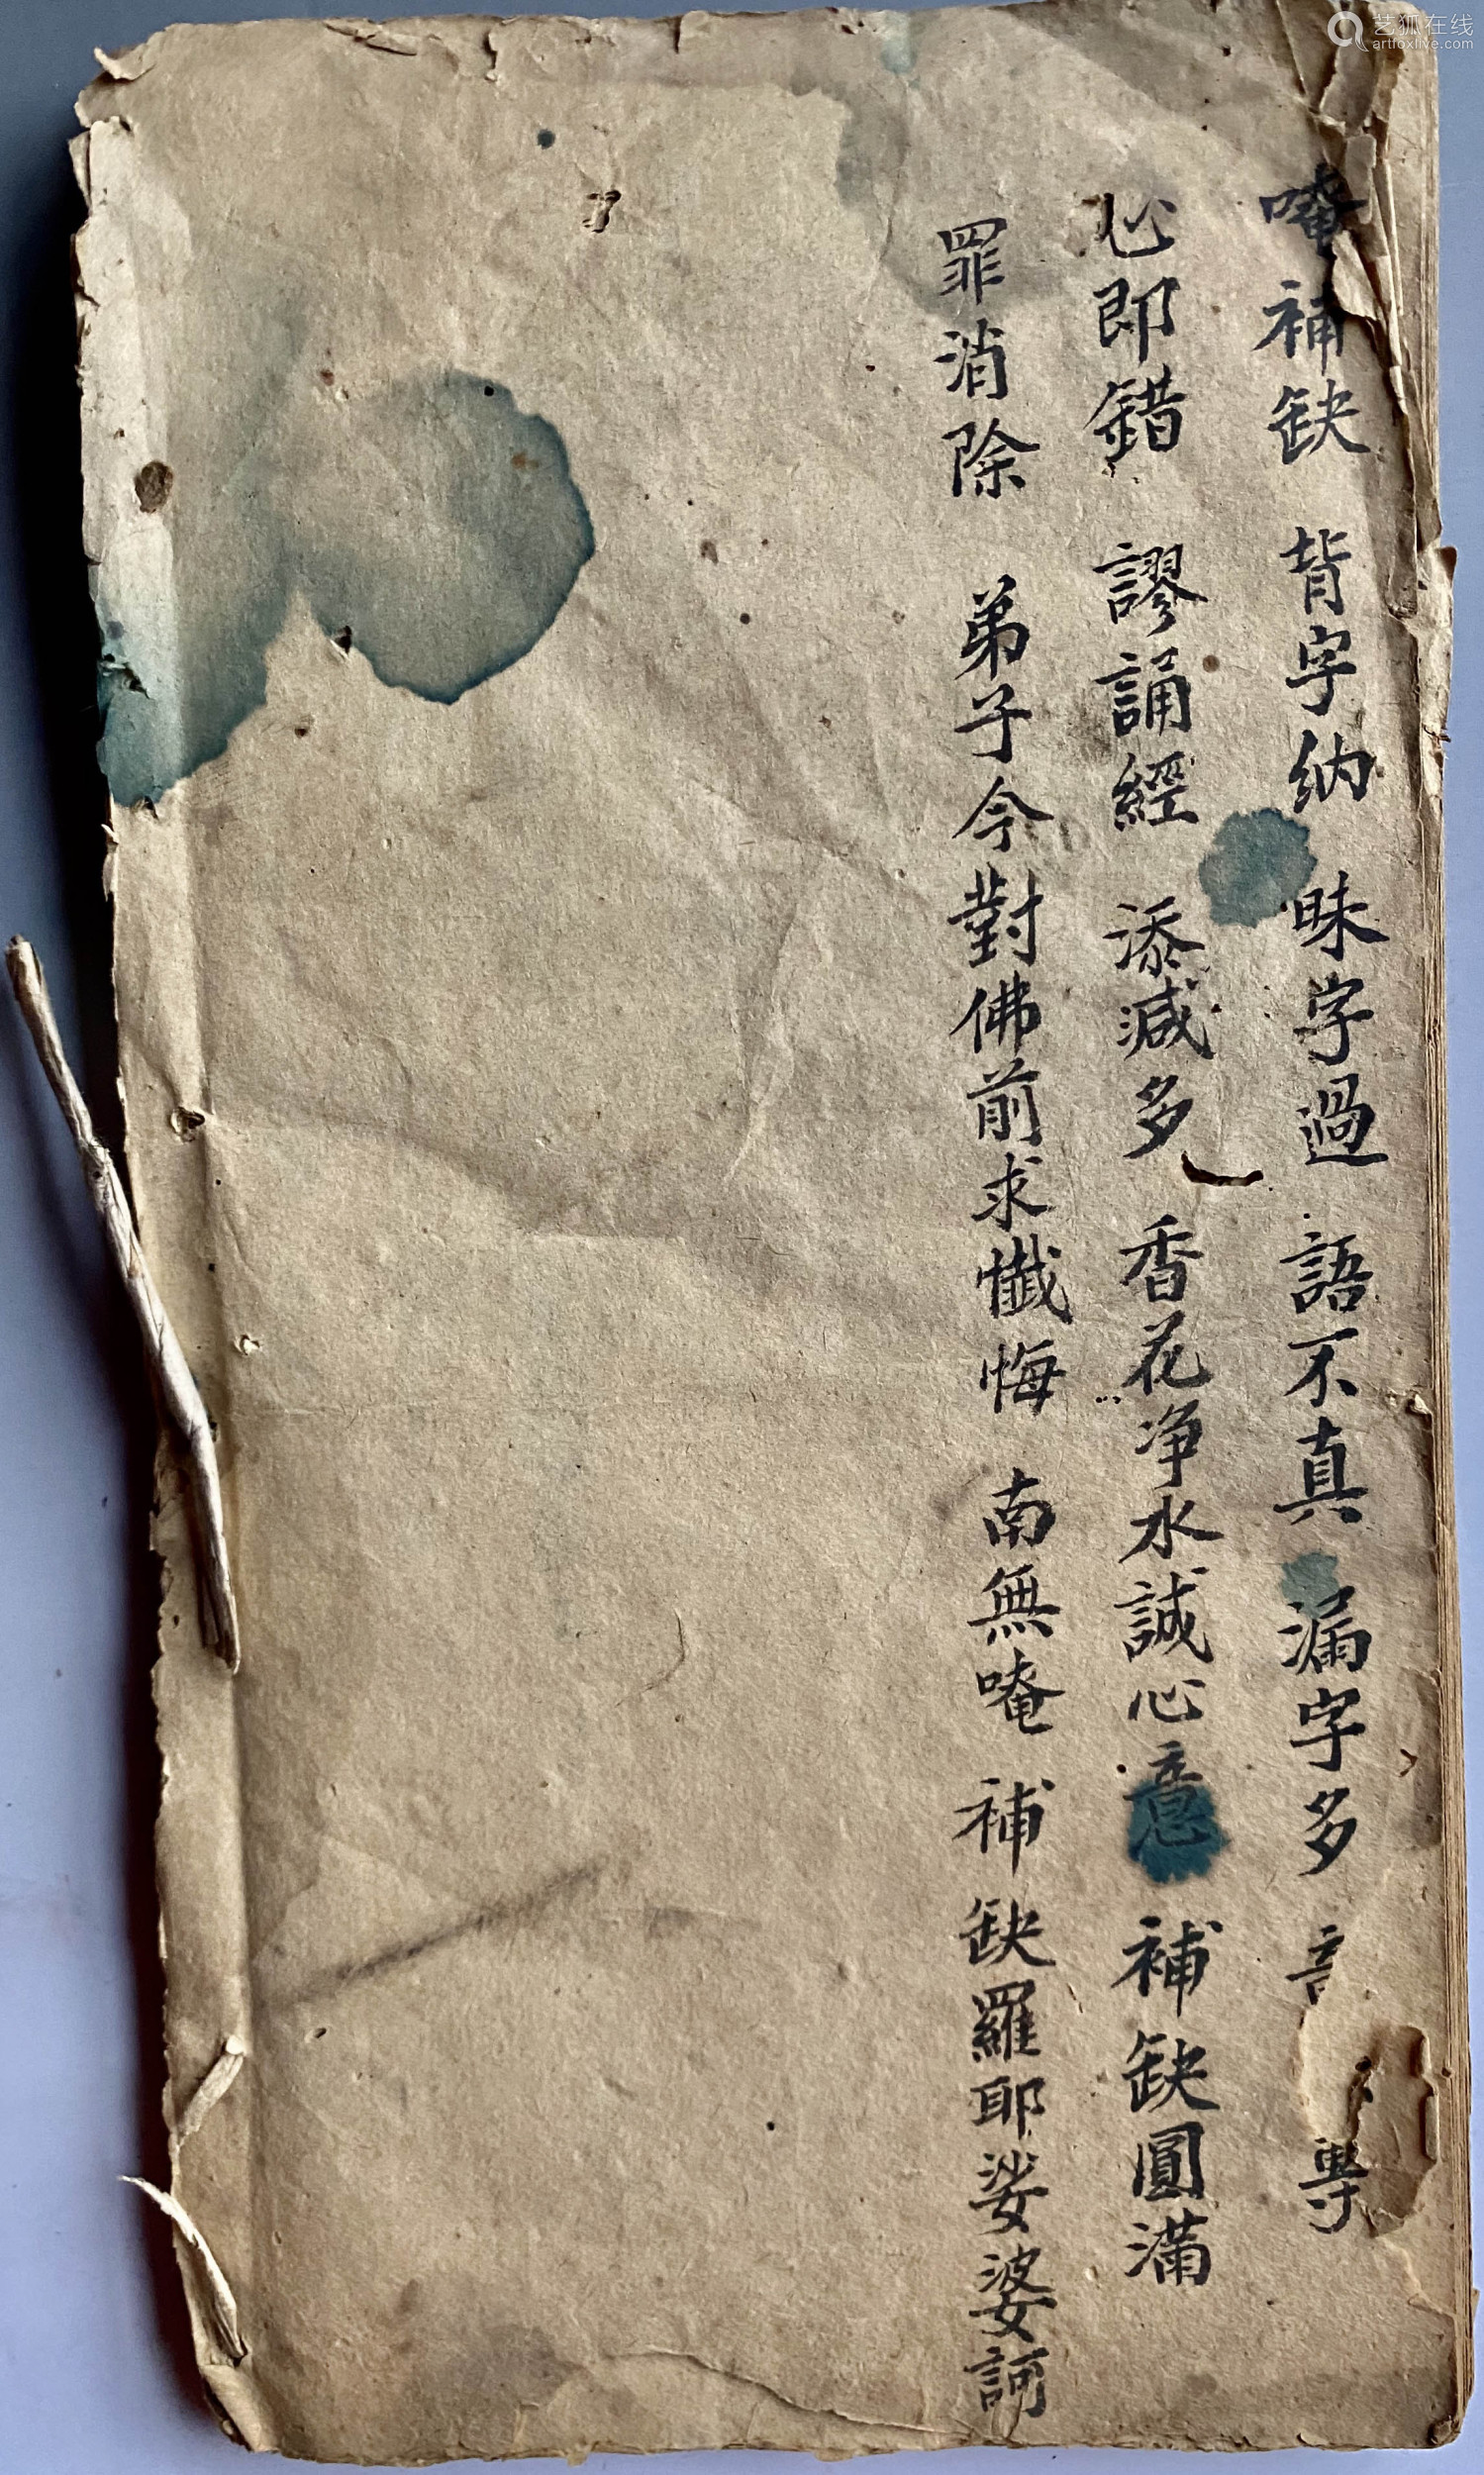 唵補缺 背字纳 昧字過 語不真 漏字多
心即錯 謬誦經 添减多 香花净水誠心意 補缺圓滿
罪消除 弟子今對佛前求懺悔 南無唵 補缺羅耶娑婆訶
艺狐在线
artfoxlive.com